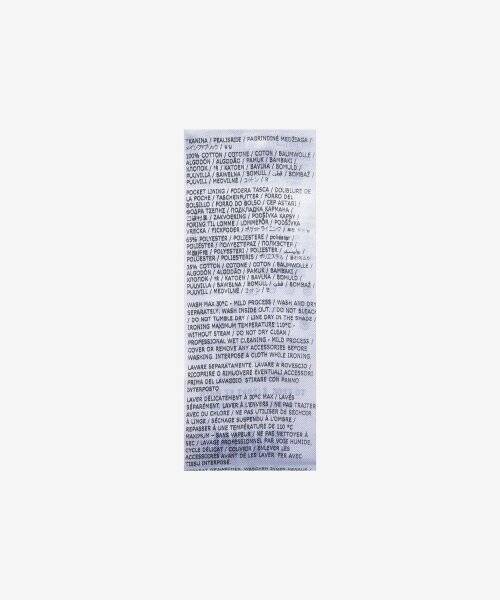 TKANINA / PEALISRIIE / PAGRINDINĖ MEDŽIAGA /
100% COTTON / COTONE / COTON / BAUMWOLLE /
ALGODÓN / ALGODÃO / PAMUK / BAMBAKI /
ХЛОПОК / 棉 / KATOEN / BAVLNA / BOMULD /
PUUVILLA / BAWELNA / BOMULL / قطن / BOMBAŽ /
PUUVILL / MEDVILNĖ / コットン / 면
POCKET LINING / FODERA TASCA / DOUBLURE DE
LA POCHE / TASCHENFUTTER / FORRO DEL
BOLSILLO / FORRO DO BOLSO / CEP ASTARI /
ΦΟΔΡΑ ΤΣΕΠΗΣ / ПОДКЛАДКА КАРМАНА /
口袋衬里 / ZAKVOERING / PODŠÍVKA KAPSY /
FORING TIL LOMME / LOMMEFOR / PODŠÍVKA
VRECKA / FICKFODER /
65% POLYESTER / POLIESTERE /
POLIESTER / ΠΟΛΥΕΣΤΕΡΑΣ / ПОЛИЭСТЕР /
POLYESTERI / POLIESTER /
POLÜESTER / POLIESTERIS / ポリエステル /
35% COTTON / COTONE / COTON / BAUMWOLLE /
ALGODÓN / ALGODÃO / PAMUK / BAMBAKI /
ХЛОПОК / 棉 / KATOEN / BAVLNA / BOMULD /
PUUVILLA / BAWELNA / BOMULL / قطن / BOMBAŽ /
PUUVILL / MEDVILNĖ / コットン / 면
WASH MAX 30°C - MILD PROCESS / WASH AND DRY
SEPARATELY. WASH INSIDE OUT. / DO NOT BLEACH
/ DO NOT TUMBLE DRY / LINE DRY IN THE SHADE /
IRONING MAXIMUM TEMPERATURE 110°C -
WITHOUT STEAM / DO NOT DRY CLEAN /
PROFESSIONAL WET CLEANING - MILD PROCESS /
COVER OR REMOVE ANY ACCESSORIES BEFORE
WASHING. INTERPOSE A CLOTH WHILE IRONING.
LAVARE SEPARATAMENTE. LAVARE A ROVESCIO /
RICOPRIRE O RIMUOVERE EVENTUALI ACCESSORI
PRIMA DEL LAVAGGIO. STIRARE CON PANNO
INTERPOSTO
LAVER DÉLICATEMENT À 30°C MAX / LAVÉS
SÉPARÉMENT. LAVER À L'ENVERS / NE PAS TRAITER
AVEC DU CHLORE / NE PAS UTILISER DE SÉCHOIR
À LINGE / SÉCHAGE SUSPENDU À L'OMBRE /
REPASSER À UNE TEMPÉRATURE DE 110 °C
MAXIMUM – SANS VAPEUR / NE PAS NETTOYER À
SEC / LAVAGE PROFESSIONNEL PAR VOIE HUMIDE,
CYCLE DÉLICAT / COUVRIR / ENLEVER LES
ACCESSOIRES AVANT DE LES LAVER. FER AVEC
TISSU INTERPOSÉ.